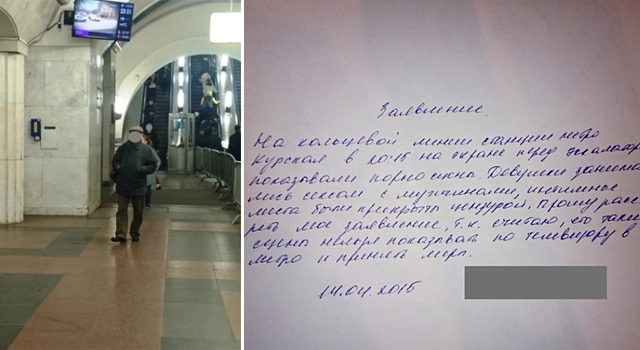 Заявление.
На кольцевой линии станции метро
Курская в 20:15 на экране перед эскалатор
показовали порно сцена. Девушки занима
лись сексом с мужчинами, интимные
места были прикрыты цензурой. Прошу расс
реть мое заявление, т.к. считаю, что такие
сцена нельзя показывать по телевизору в
метро и принять меры.
14.04.2015